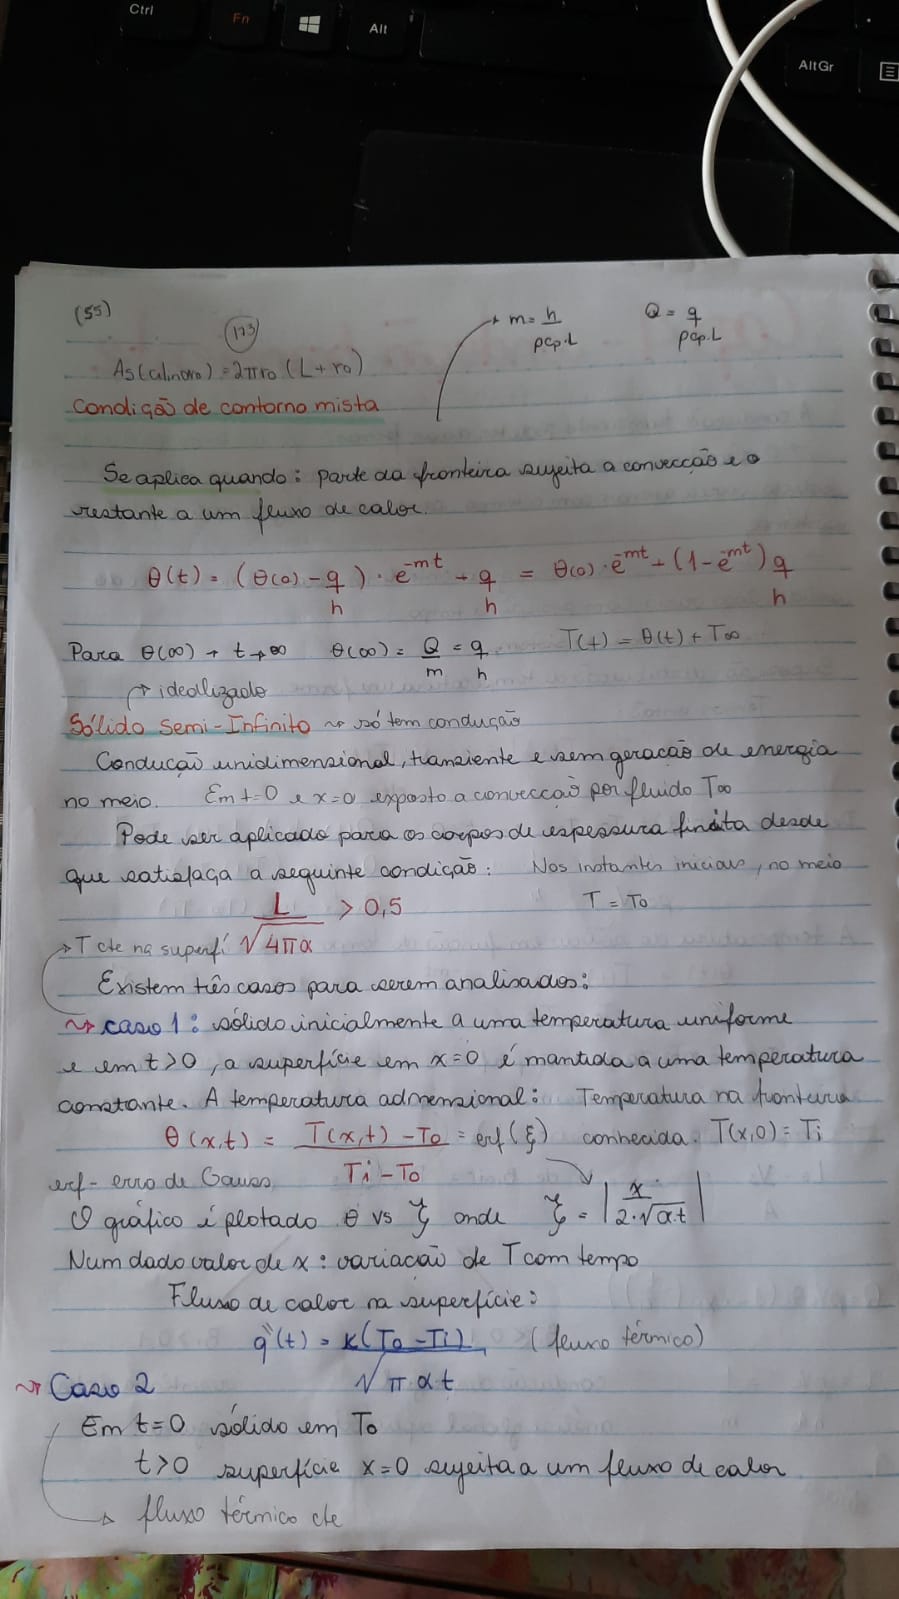 Ctrl
Fn
Alt
AltGr
(55)
173
m = h / ρcp.L
Q = q / ρcp.L
As(cilindro) = 2πr₀ (L + r₀)
Condição de contorno mista
Se aplica quando: parte da fronteira sujeita a convecção e o
restante a um fluxo de calor.
θ(t) = (θ(0) - q/h) · e^-mt + q/h = θ(0) · e^-mt + (1 - e^-mt) q/h
Para θ(∞) → t→∞ θ(∞) = Q/m = q/h T(t) = θ(t) + T∞
↱ idealizado
Sólido Semi-Infinito ⤳ só tem condução
Condução unidimensional, transiente e sem geração de energia
no meio. Em t=0 e x=0 exposto a convecção por fluido T∞
Pode ser aplicado para os corpos de espessura finita desde
que satisfaça a seguinte condição: Nos instantes iniciais, no meio
L / √4πα > 0,5 T = T₀
→ T cte na superfí
Existem três casos para serem analisados:
⤳ caso 1: sólido inicialmente a uma temperatura uniforme
e em t>0, a superfície em x=0 é mantida a uma temperatura
constante. A temperatura admensional: Temperatura na fronteira
θ(x,t) = T(x,t) - T₀ / Ti - T₀ = erf(ξ) conhecida. T(x,0) = Ti
erf - erro de Gauss
O gráfico é plotado θ vs ξ onde ξ = | x / 2.√α.t |
Num dado valor de x: variação de T com tempo
Fluxo de calor na superfície:
q"(t) = K(T₀ - Ti) / √π α t (fluxo térmico)
⤳ Caso 2
Em t=0 sólido em T₀
t>0 superfície x=0 sujeita a um fluxo de calor
→ fluxo térmico cte